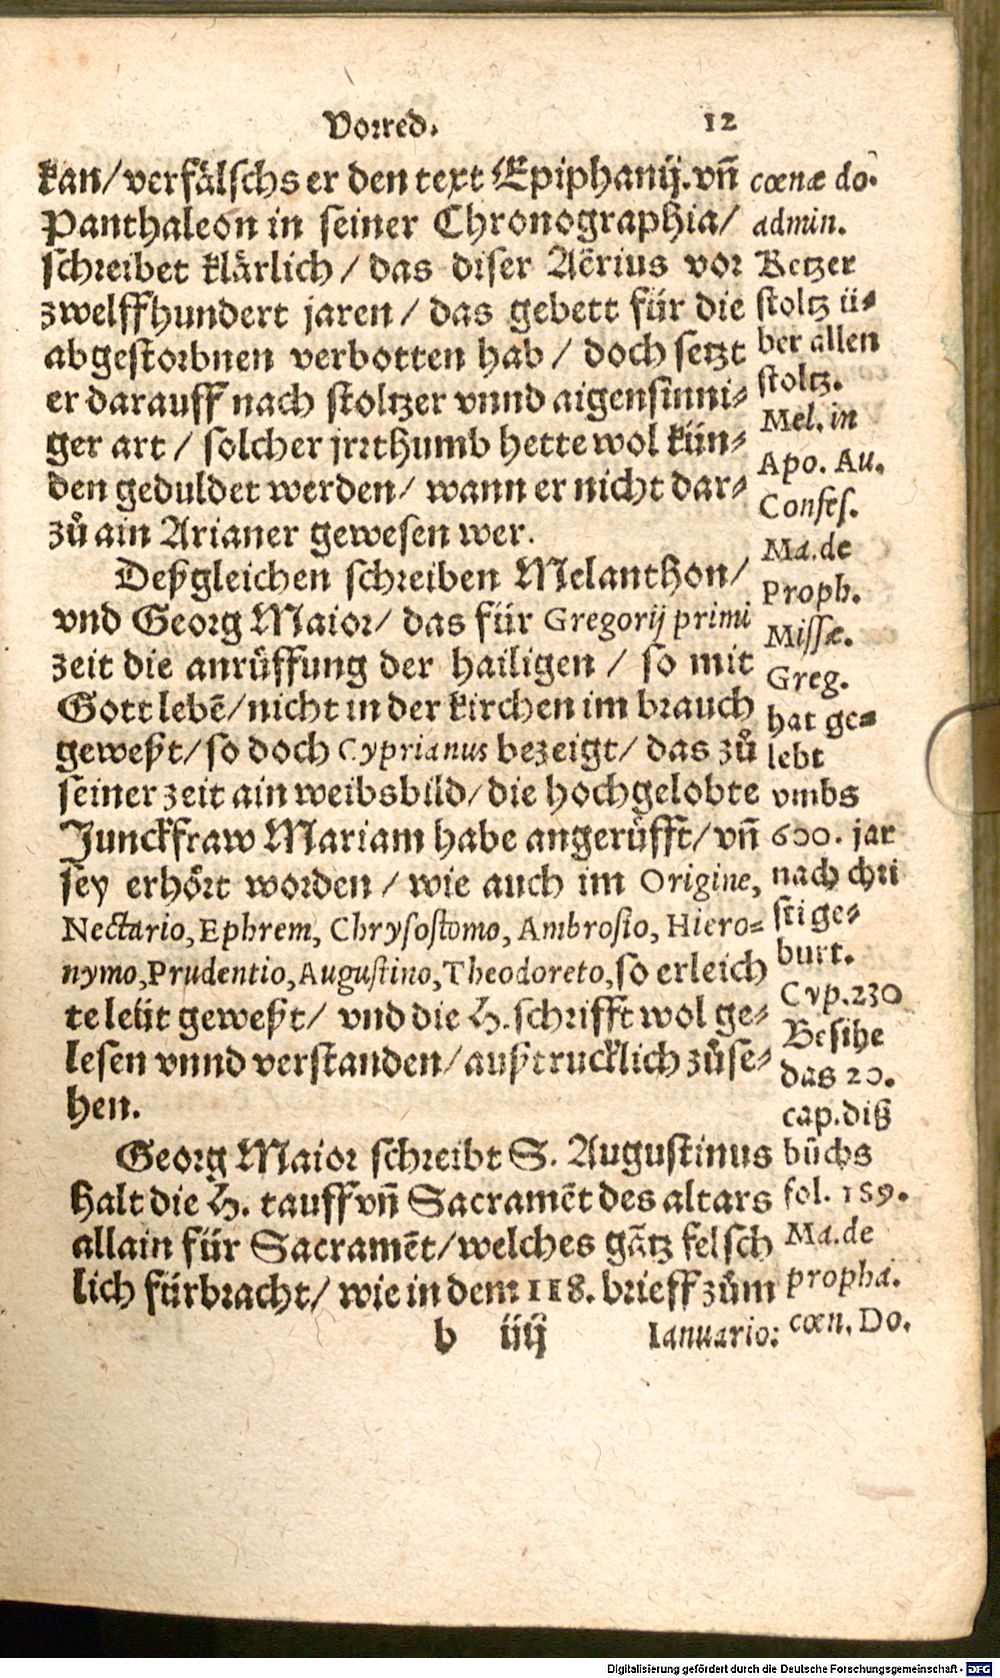 Vorred.
12
kan/verfälschs er den text Epiphanij. vñ
Panthaleon in seiner Chronographia/
schreibet klärlich / das diser Aërius vor
zwelffhundert jaren / das gebett für die
abgestorbnen verbotten hab / doch setzt
er darauff nach stoltzer vnnd aigensinni-
ger art / solcher jrrthumb hette wol kün-
den geduldet werden/ wann er nicht dar-
zů ain Arianer gewesen wer.
Deßgleichen schreiben Melanthon/
vnd Georg Maior/ das für Gregorij primi
zeit die anrüffung der hailigen / so mit
Gott lebẽ/nicht in der kirchen im brauch
geweßt/so doch Cyprianus bezeigt/ das zů
seiner zeit ain weibsbild/die hochgelobte
Junckfraw Mariam habe angerüfft/vñ
sey erhört worden / wie auch im Origine,
Nectario, Ephrem, Chrysostomo, Ambrosio, Hiero-
nymo, Prudentio, Augustino, Theodoreto, so erleich
te leüt geweßt/ vnd die H. schrifft wol ge-
lesen vnnd verstanden/außtrucklich zůse-
hen.
Georg Maior schreibt S. Augustinus
halt die H. tauff vñ Sacramẽt des altars
allain für Sacramẽt/welches gãtz felsch
lich fürbracht/ wie in dem 118. brieff zům
b iiij
Ianuario:
cœnæ do.
admin.
Ketzer
stoltz ü-
ber allen
stoltz.
Mel. in
Apo. Au.
Confes.
Ma. de
Proph.
Missæ.
Greg.
hat ge-
lebt
vmbs
600. jar
nach chri
sti ge-
burt.
Cyp. 230
Besihe
das 20.
cap. diß
bůchs
fol. 159.
Ma. de
propha.
cœn. Do.
Digitalisierung gefördert durch die Deutsche Forschungsgemeinschaft - DFG